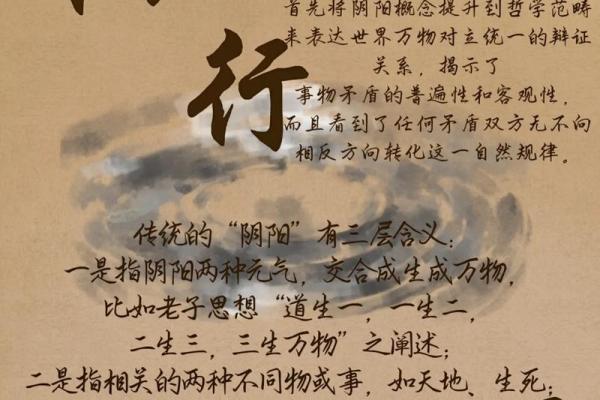 行
首先将阴阳概念提升到哲学范畴
来表达世界万物对立统一的辩证
关系，揭示了
事物矛盾的普遍性和客观性，
而且看到了任何矛盾双方无不向
相反方向转化这一自然规律。
传统的“阴阳”有三层含义：
一是指阴阳两种元气，交合成生成万物，
比如老子思想“道生一，一生二，
二生三，三生万物”之阐述；
二是指相关的两种不同物或事，如天地、生死；